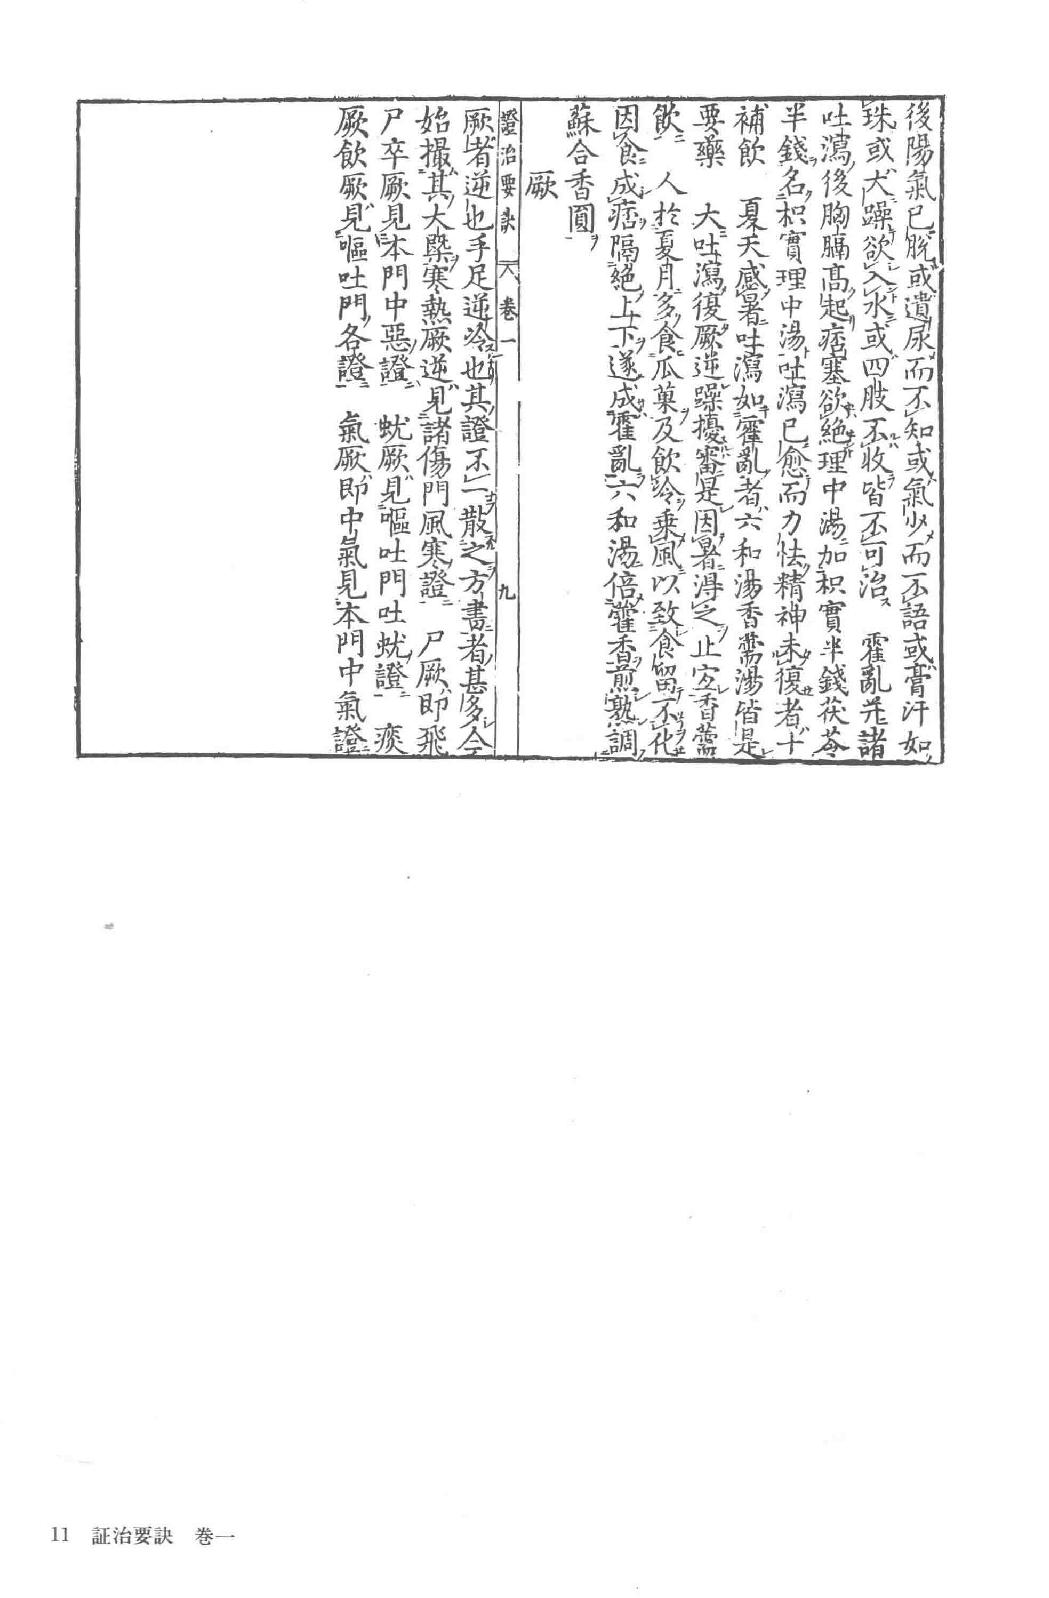 後陽氣已脫或遺尿而不知或氣少而不語或膏汗如
珠或大躁欲入水或四肢不收皆不可治　霍亂并諸
吐瀉後胸膈高起痞塞欲絕理中湯加枳實半錢茯苓
半錢名枳實理中湯吐瀉已愈而力怯精神未復者十
補飲　夏天感暑吐瀉如霍亂者六和湯香薷湯皆是
要藥　大吐瀉復厥逆躁擾審是因暑得之止宜香薷
飲　人於夏月多食瓜菓及飲冷乘風以致食留不化
因食成痞隔絕上下遂成霍亂六和湯倍藿香煎熟調
蘇合香圓
厥
證治要訣　卷一　九
厥者逆也手足逆冷也其證不一散之方書者甚多今
始撮其大槩寒熱厥逆見諸傷門風寒證　尸厥即飛
尸卒厥見本門中惡證　蚘厥見嘔吐門吐蚘證　痰
厥飲厥見嘔吐門各證　氣厥即中氣見本門中氣證
11　証治要訣　巻一